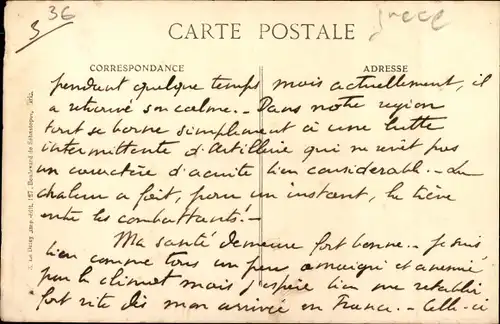 36
3
Grece
CARTE POSTALE
CORRESPONDANCE
ADRESSE
pendant quelque temps mais actuellement, il
a retrouvé son calme. - Dans notre region
tout se borne simplement à une lutte
intermittente d'artillerie qui ne revêt pas
un caractère d'acuité bien considérable. - La
chaleur a fait, pour un instant, la trève
entre les combattants. -
Ma santé demeure fort bonne. - Je suis
bien comme tous un peu amaigri et anemié
par le climat mais j'espère bien me retablir
fort vite dès mon arrivée en France. - Celle-ci